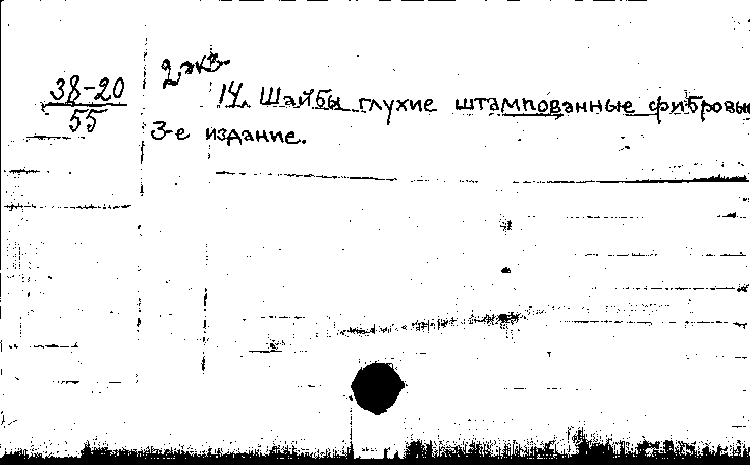 2 экз
38-20
55
14. Шайбы глухие штампованные фибровы
3-е издание.